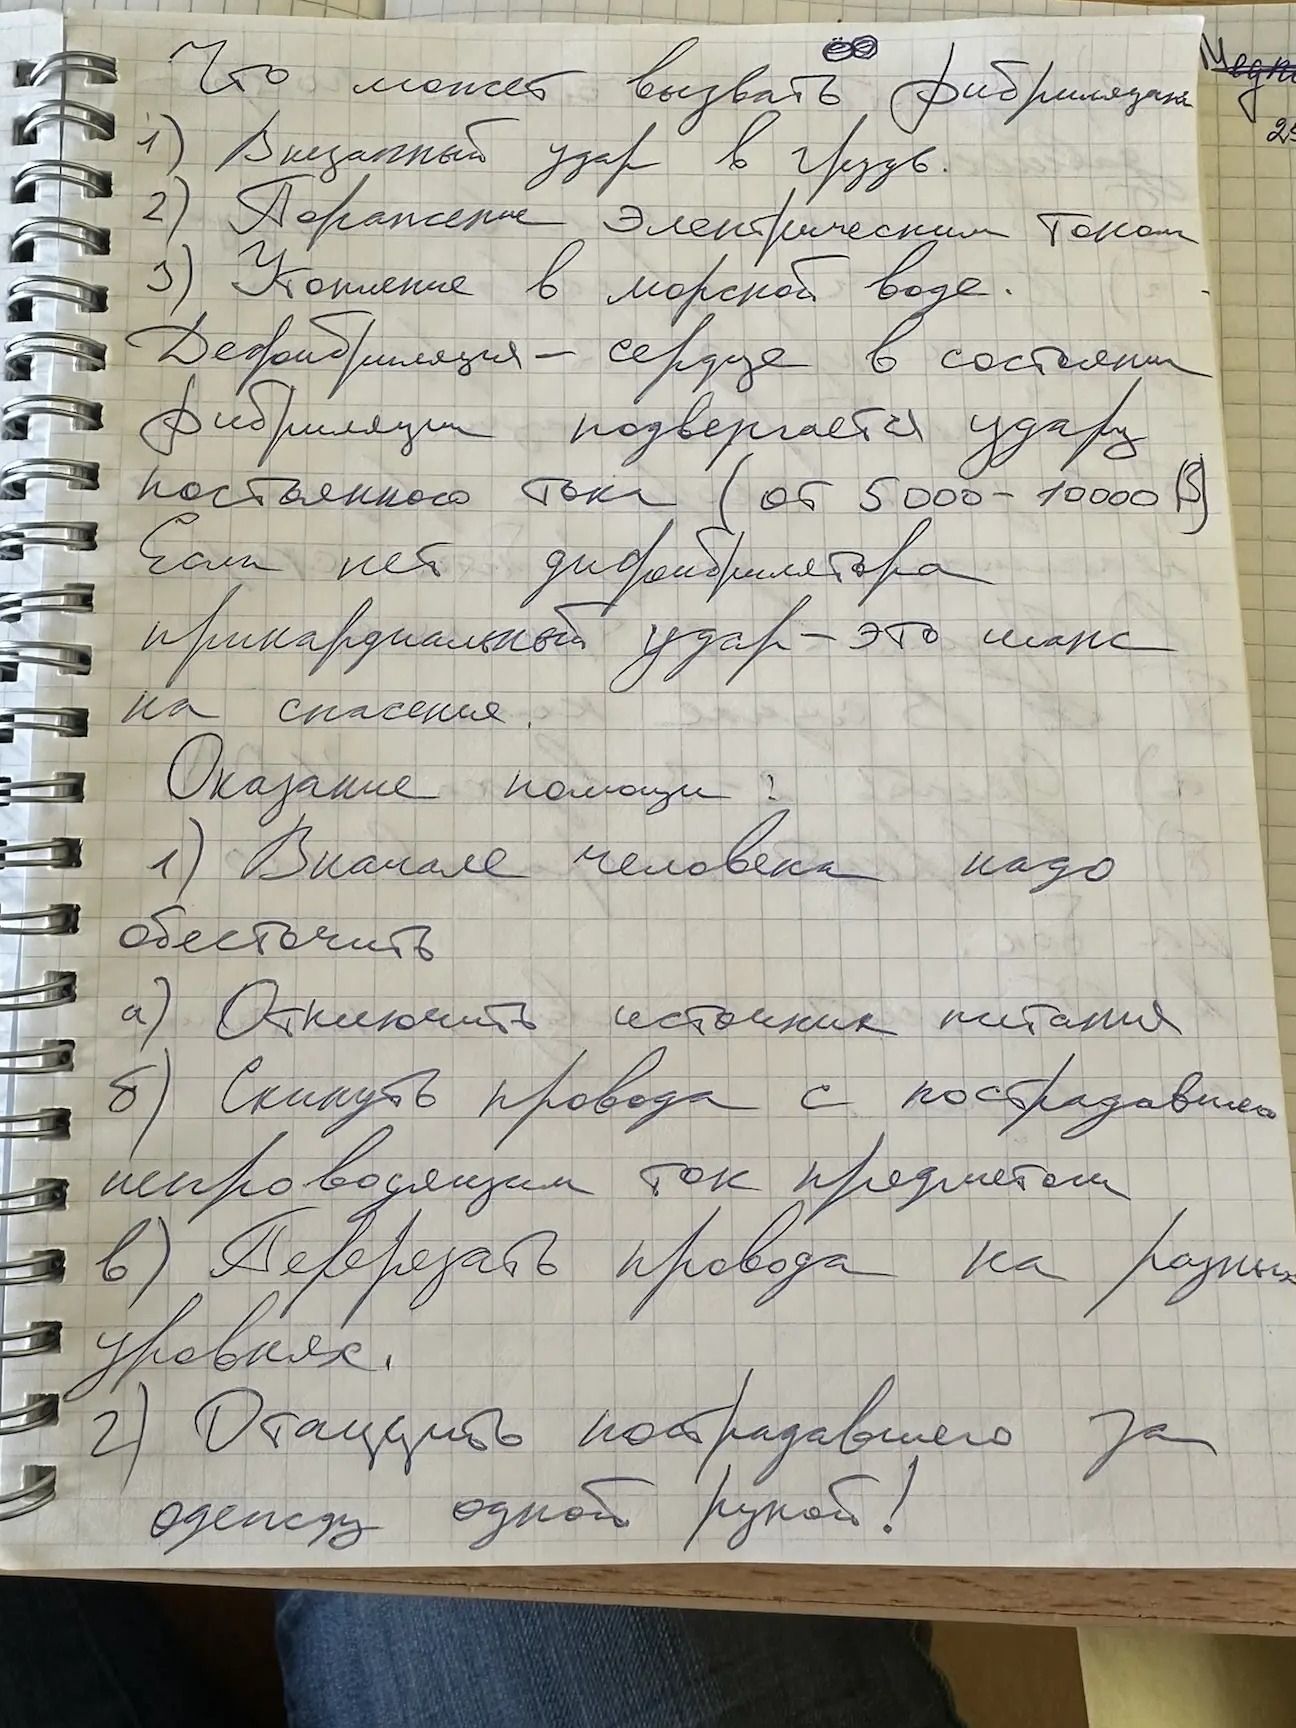 Что может вызвать фибриляцию
1) Внезапный удар в грудь.
2) Поражение электрическим током
3) Утопление в морской воде.
Дефибриляция – сердце в состоянии
фибриляции подвергается удару
постоянного тока (от 5000 – 10000 В)
Если нет дифибрилятора
прикардиальный удар – это шанс
на спасение.
Оказание помощи:
1) Вначале человека надо
обесточить
а) Отключить источник питания
б) Скинуть провода с пострадавшего
непроводящим ток предметом
в) Перерезать провода на разных
уровнях.
2) Отащить пострадавшего за
одежду одной рукой!